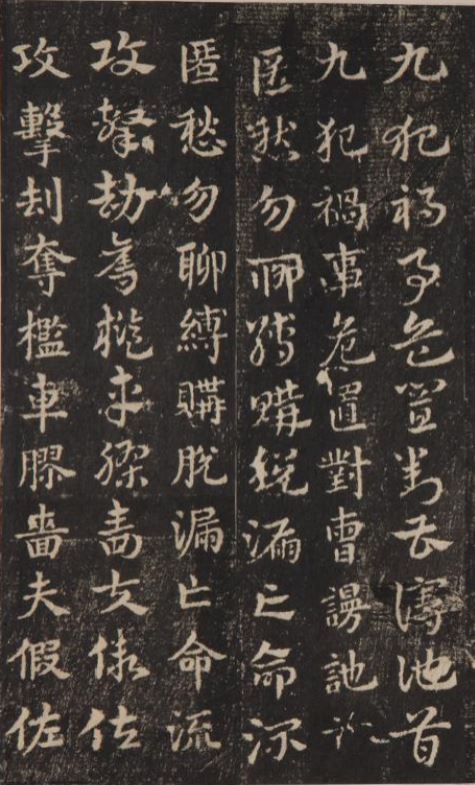 九犯禍事危置對曹謾訑首
九犯禍事危置對曹謾訑
匿愁勿聊縛購脫漏亡命流
匿愁勿聊縛購脫漏亡命流
攻擊劫奪檻車膠嗇夫假佐
攻擊刦奪檻車膠嗇夫假佐